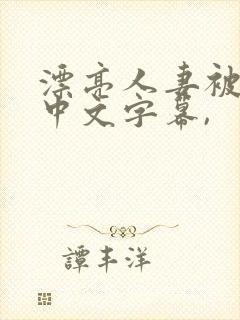 漂亮人妻被
中文字幕,
譚丰洋